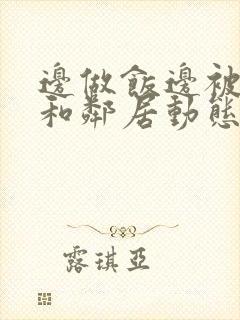 邊做飯邊被
和鄰居動態
露琪亞